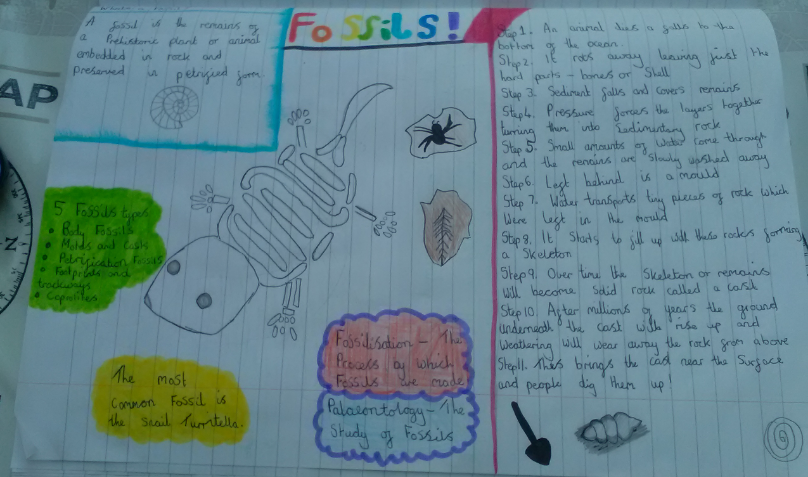 Fossils!
A fossil is the remains of
a Prehistoric plant or animal
embedded in rock and
preserved in petrified form
AP
N
5 Fossils types
• Body Fossils
• Molds and Casts
• Petrification Fossils
• Footprints and
trackways
• Coprolites
The most
Common Fossil is
the Snail Turritella.
Fossilisation - The
Process by which
Fossils are made
Palaeontology - The
Study of Fossils
Step 1. An animal dies & falls to the
bottom of the ocean.
Step 2. It rots away leaving just the
hard parts - bones or Shell
Step 3. Sediment falls and covers remains
Step 4. Pressure forces the layers together
turning them into Sedimentary rock
Step 5. Small amounts of water come through
and the remains are slowly washed away
Step 6. Left behind is a mould
Step 7. Water transports tiny pieces of rock which
were left in the mould
Step 8. It Starts to fill up with these rocks forming
a Skeleton
Step 9. Over time the Skeleton or remains
will become Solid rock called a cast
Step 10. After millions of years the ground
underneath the cast will rise up and
weathering will wear away the rock from above
Step 11. This brings the cast near the Surface
and people dig them up!